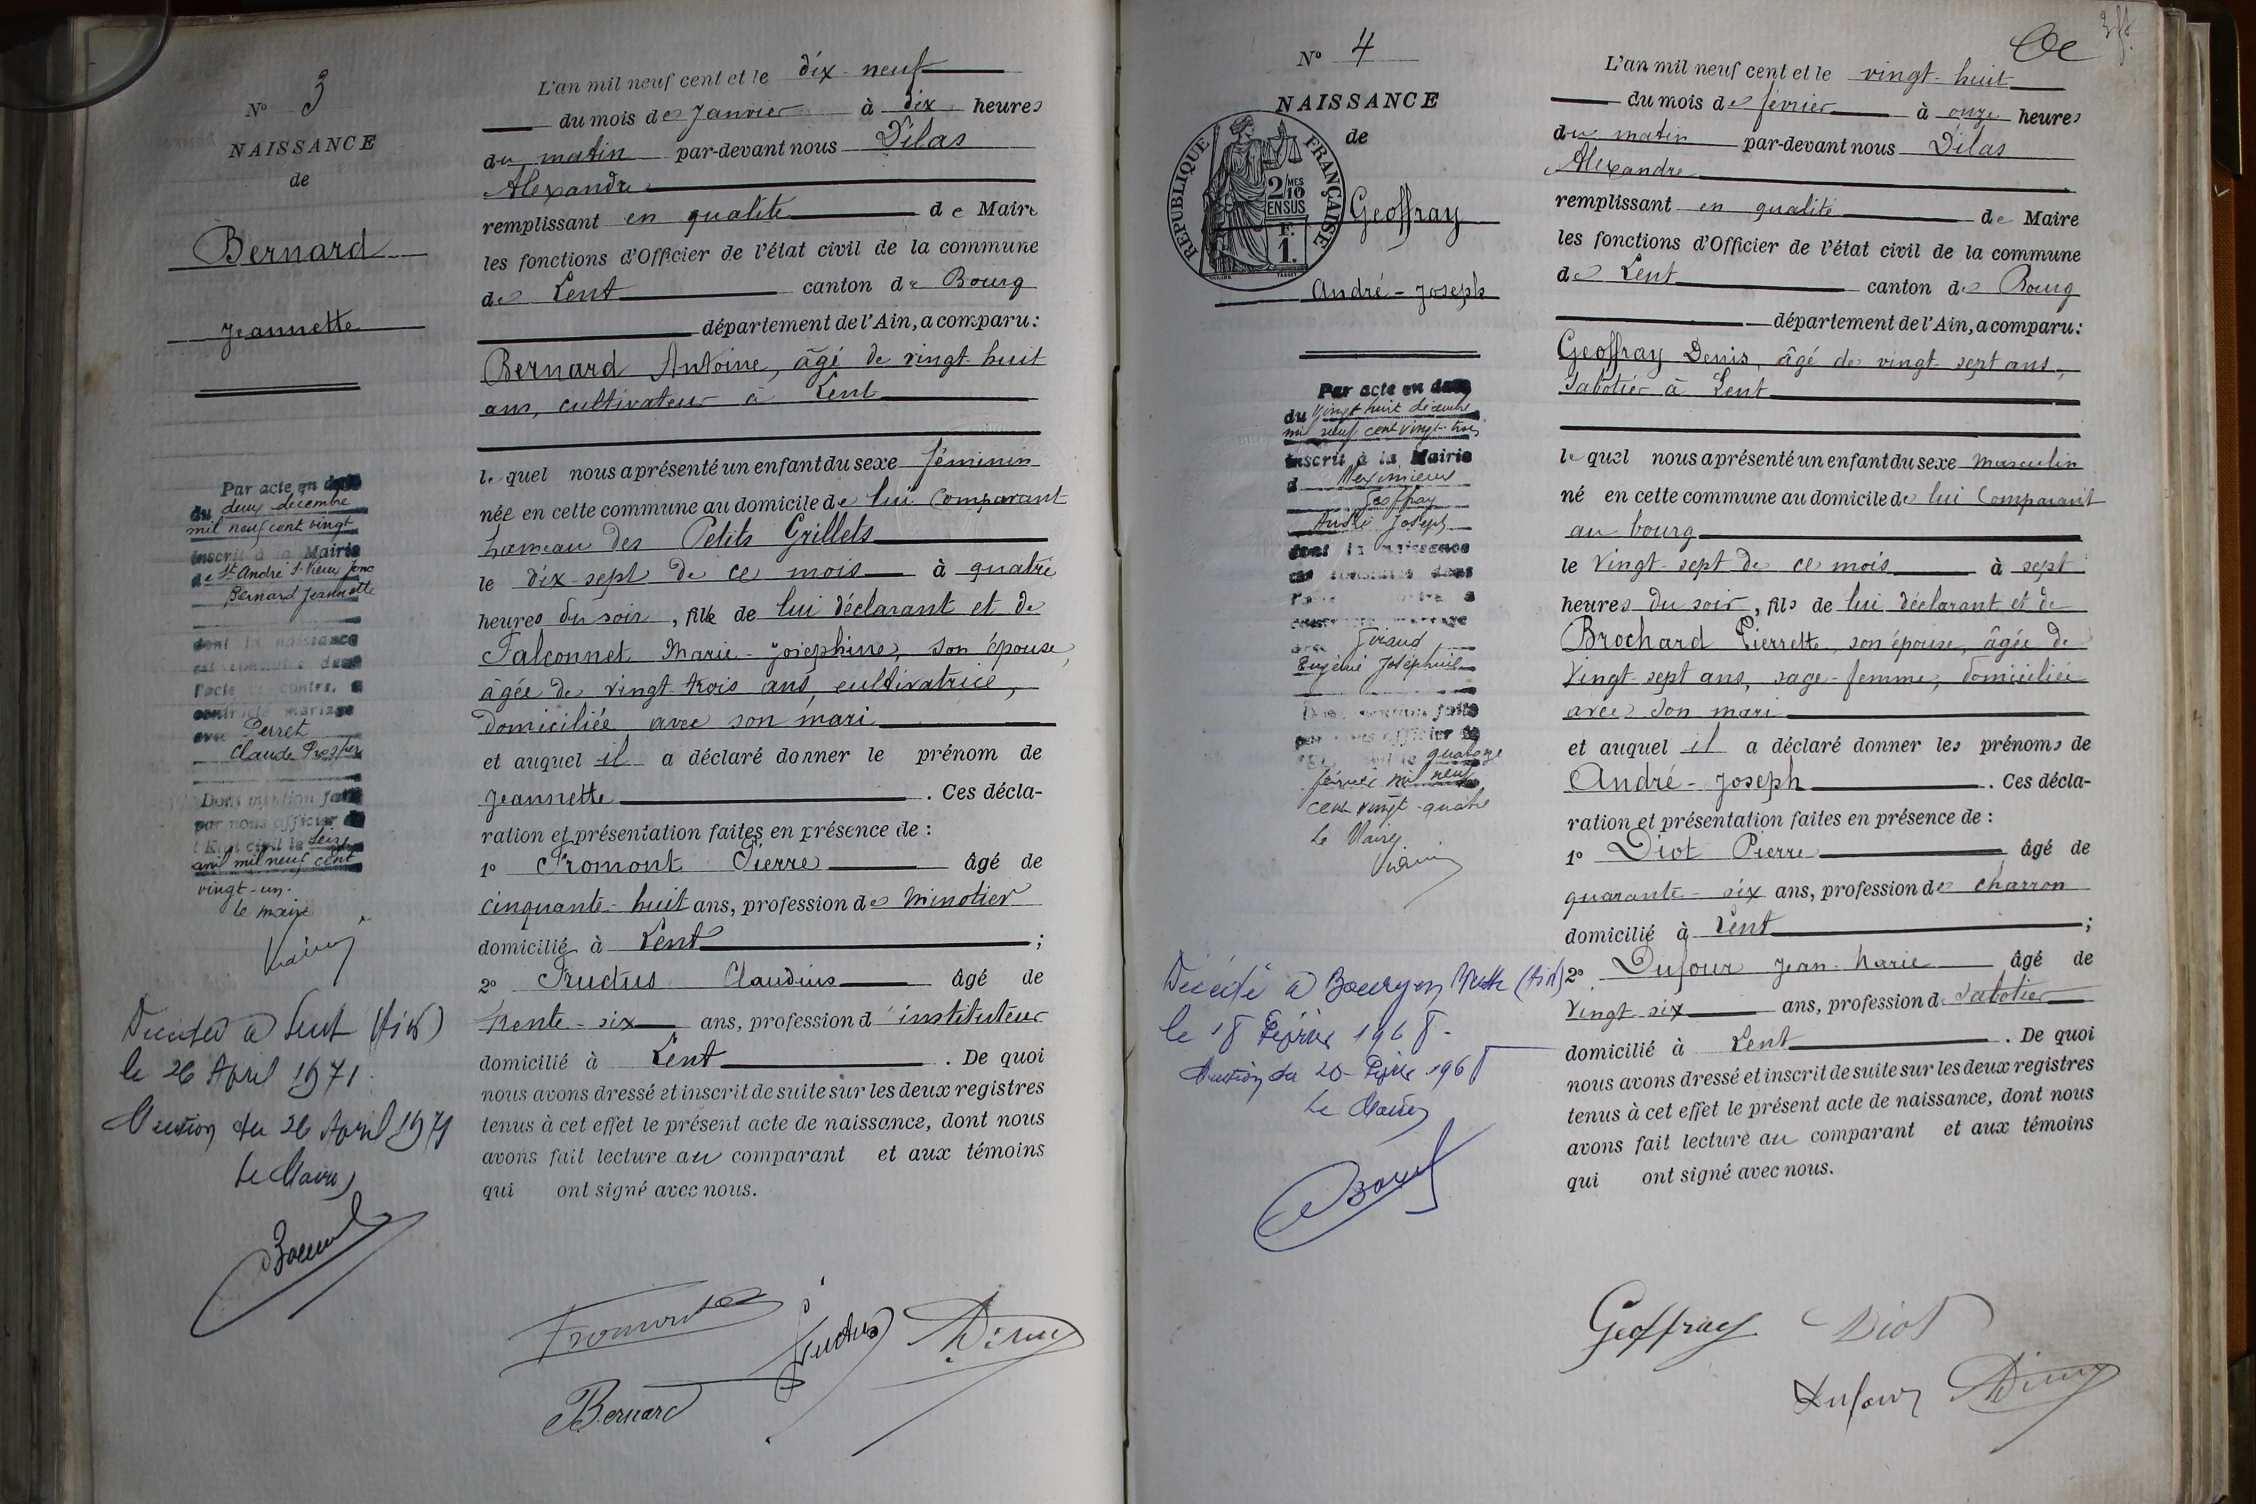 N° 3
NAISSANCE
de
Bernard
Jeannette
Par acte en date
du deux décembre
mil neuf cent vingt
inscrit à la Mairie
de St André s. Vieux Jonc
Bernard Jeannette
dont la naissance
est constatée dans
l'acte ci-contre, a
contracté mariage
avec Perret
Claude
Dont mention faite
par nous officier de
l'Etat civil le seize
avril mil neuf cent
vingt-un.
Le maire
Décédée à Lent (Ain)
le 26 Avril 1971
Mention du 26 Avril 1971
Le Maire
L'an mil neuf cent et le dix-neuf
du mois de Janvier à dix heures
du matin par-devant nous Dilas
Alexandre
remplissant en qualité de Maire
les fonctions d'Officier de l'état civil de la commune
de Lent canton de Bourg
département de l'Ain, a comparu:
Bernard Antoine, âgé de vingt-huit
ans, cultivateur à Lent
lequel nous a présenté un enfant du sexe féminin
née en cette commune au domicile de lui Comparant
hameau des Petits Grillets
le dix-sept de ce mois à quatre
heures du soir, fille de lui déclarant et de
Falconnet Marie-Joséphine, son épouse,
âgée de vingt-trois ans, cultivatrice,
domiciliée avec son mari
et auquel il a déclaré donner le prénom de
Jeannette. Ces décla-
ration et présentation faites en présence de :
1° Fromont Pierre âgé de
cinquante-huit ans, profession de Minotier
domicilié à Lent ;
2° Fructus Claudius âgé de
trente-six ans, profession d'instituteur
domicilié à Lent. De quoi
nous avons dressé et inscrit de suite sur les deux registres
tenus à cet effet le présent acte de naissance, dont nous
avons fait lecture au comparant et aux témoins
qui ont signé avec nous.
Fromont
Fructus
Bernard
N° 4
NAISSANCE
de
RÉPUBLIQUE FRANÇAISE
2/10 MES
EN SUS
F.
1.
Geoffray
André-Joseph
Par acte en date
du vingt huit décembre
mil neuf cent vingt-trois
inscrit à la Mairie
d Meximieux
Geoffray
André Joseph
dont la naissance
est constatée dans
l'acte ci-contre a
contracté mariage
avec
Eugénie Joséphine
Dont mention faite
par nous officier de
l'Etat civil le quatorze
février mil neuf
cent vingt-quatre
Le Maire
Décédé à Bourg en Bresse (Ain)
le 18 Février 1968.
Mention du 20 Février 1968
Le Maire
L'an mil neuf cent et le vingt-huit
du mois de février à onze heures
du matin par-devant nous Dilas
Alexandre
remplissant en qualité de Maire
les fonctions d'Officier de l'état civil de la commune
de Lent canton de Bourg
département de l'Ain, a comparu:
Geoffray Denis, âgé de vingt-sept ans,
sabotier à Lent
lequel nous a présenté un enfant du sexe masculin
né en cette commune au domicile de lui Comparant
au bourg
le vingt-sept de ce mois à sept
heures du soir, fils de lui déclarant et de
Brochard Pierrette, son épouse, âgée de
vingt-sept ans, sage-femme, domiciliée
avec son mari
et auquel il a déclaré donner les prénoms de
André-Joseph. Ces décla-
ration et présentation faites en présence de :
1° Diot Pierre âgé de
quarante-six ans, profession de charron
domicilié à Lent ;
2° Dufour Jean-Marie âgé de
vingt-six ans, profession de sabotier
domicilié à Lent. De quoi
nous avons dressé et inscrit de suite sur les deux registres
tenus à cet effet le présent acte de naissance, dont nous
avons fait lecture au comparant et aux témoins
qui ont signé avec nous.
Geoffray Diot
Dufour